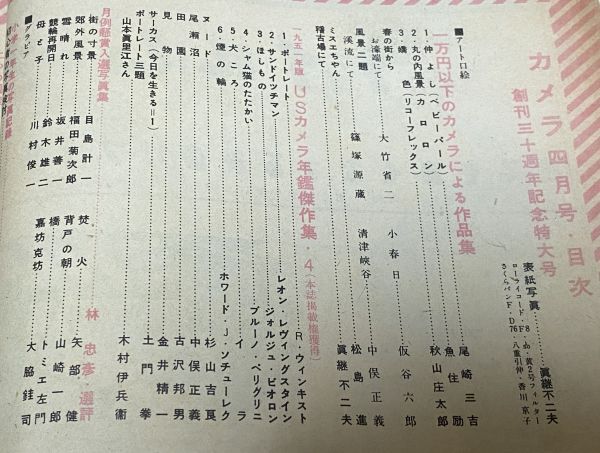 カメラ四月号・目次
創刊三十週年記念特大号
表紙写眞………………眞継不二夫
ローライコード・F8・1/50・黄2号フイルター
さくらパンF・D76・八重引伸・香川京子
■アート口絵
一万円以下のカメラによる作品集
1・仲よし(ベビーパール)………………尾崎三吉
2・丸の内風景(カロロン)………………魚住励
3・嬌色(リコーフレックス)………………秋山庄太郎
春の街から………………大竹省二
小春日………………仮谷六郎
お濠端にて………………中俣正義
風景二題………………篠塚源蔵
清津峡谷………………松島進
渓流にて
ミスエちやん………………眞継不二夫
稽古場にて
一九五一年版 USカメラ年鑑傑作集・4(本誌掲載権獲得)
1・ポートレート………………R・ウィンキスト
2・サンドイツチマン………………レオン・レヴィングスタイン
3・ほしもの………………ジョルジュ・ビオロン
4・シャム猫のたたかい………………ブルーノ・ペリグリニ
5・犬ころ………………イーラ
6・煙の輪………………ホワード・J・ソチューレク
ヌード………………杉山吉良
尾瀬沼………………中俣正義
田園………………古沢邦男
見物………………金井精一
サーカス(今日を生きる=1)………………土門拳
ポートレート三題………………木村伊兵衞
山本眞里江さん
月例懸賞入選写眞集
林忠彦・選評
街の寸景………………目島計一
焚火………………矢部健
郊外風景………………福田菊次郎
背戸の朝………………山崎一郎
雪晴れ………………坂井善一
橋………………トミエ左門
競輪再開日………………鈴木雄二
嘉坊克坊………………大脇銈司
母と子………………川村俊一
■グラビア